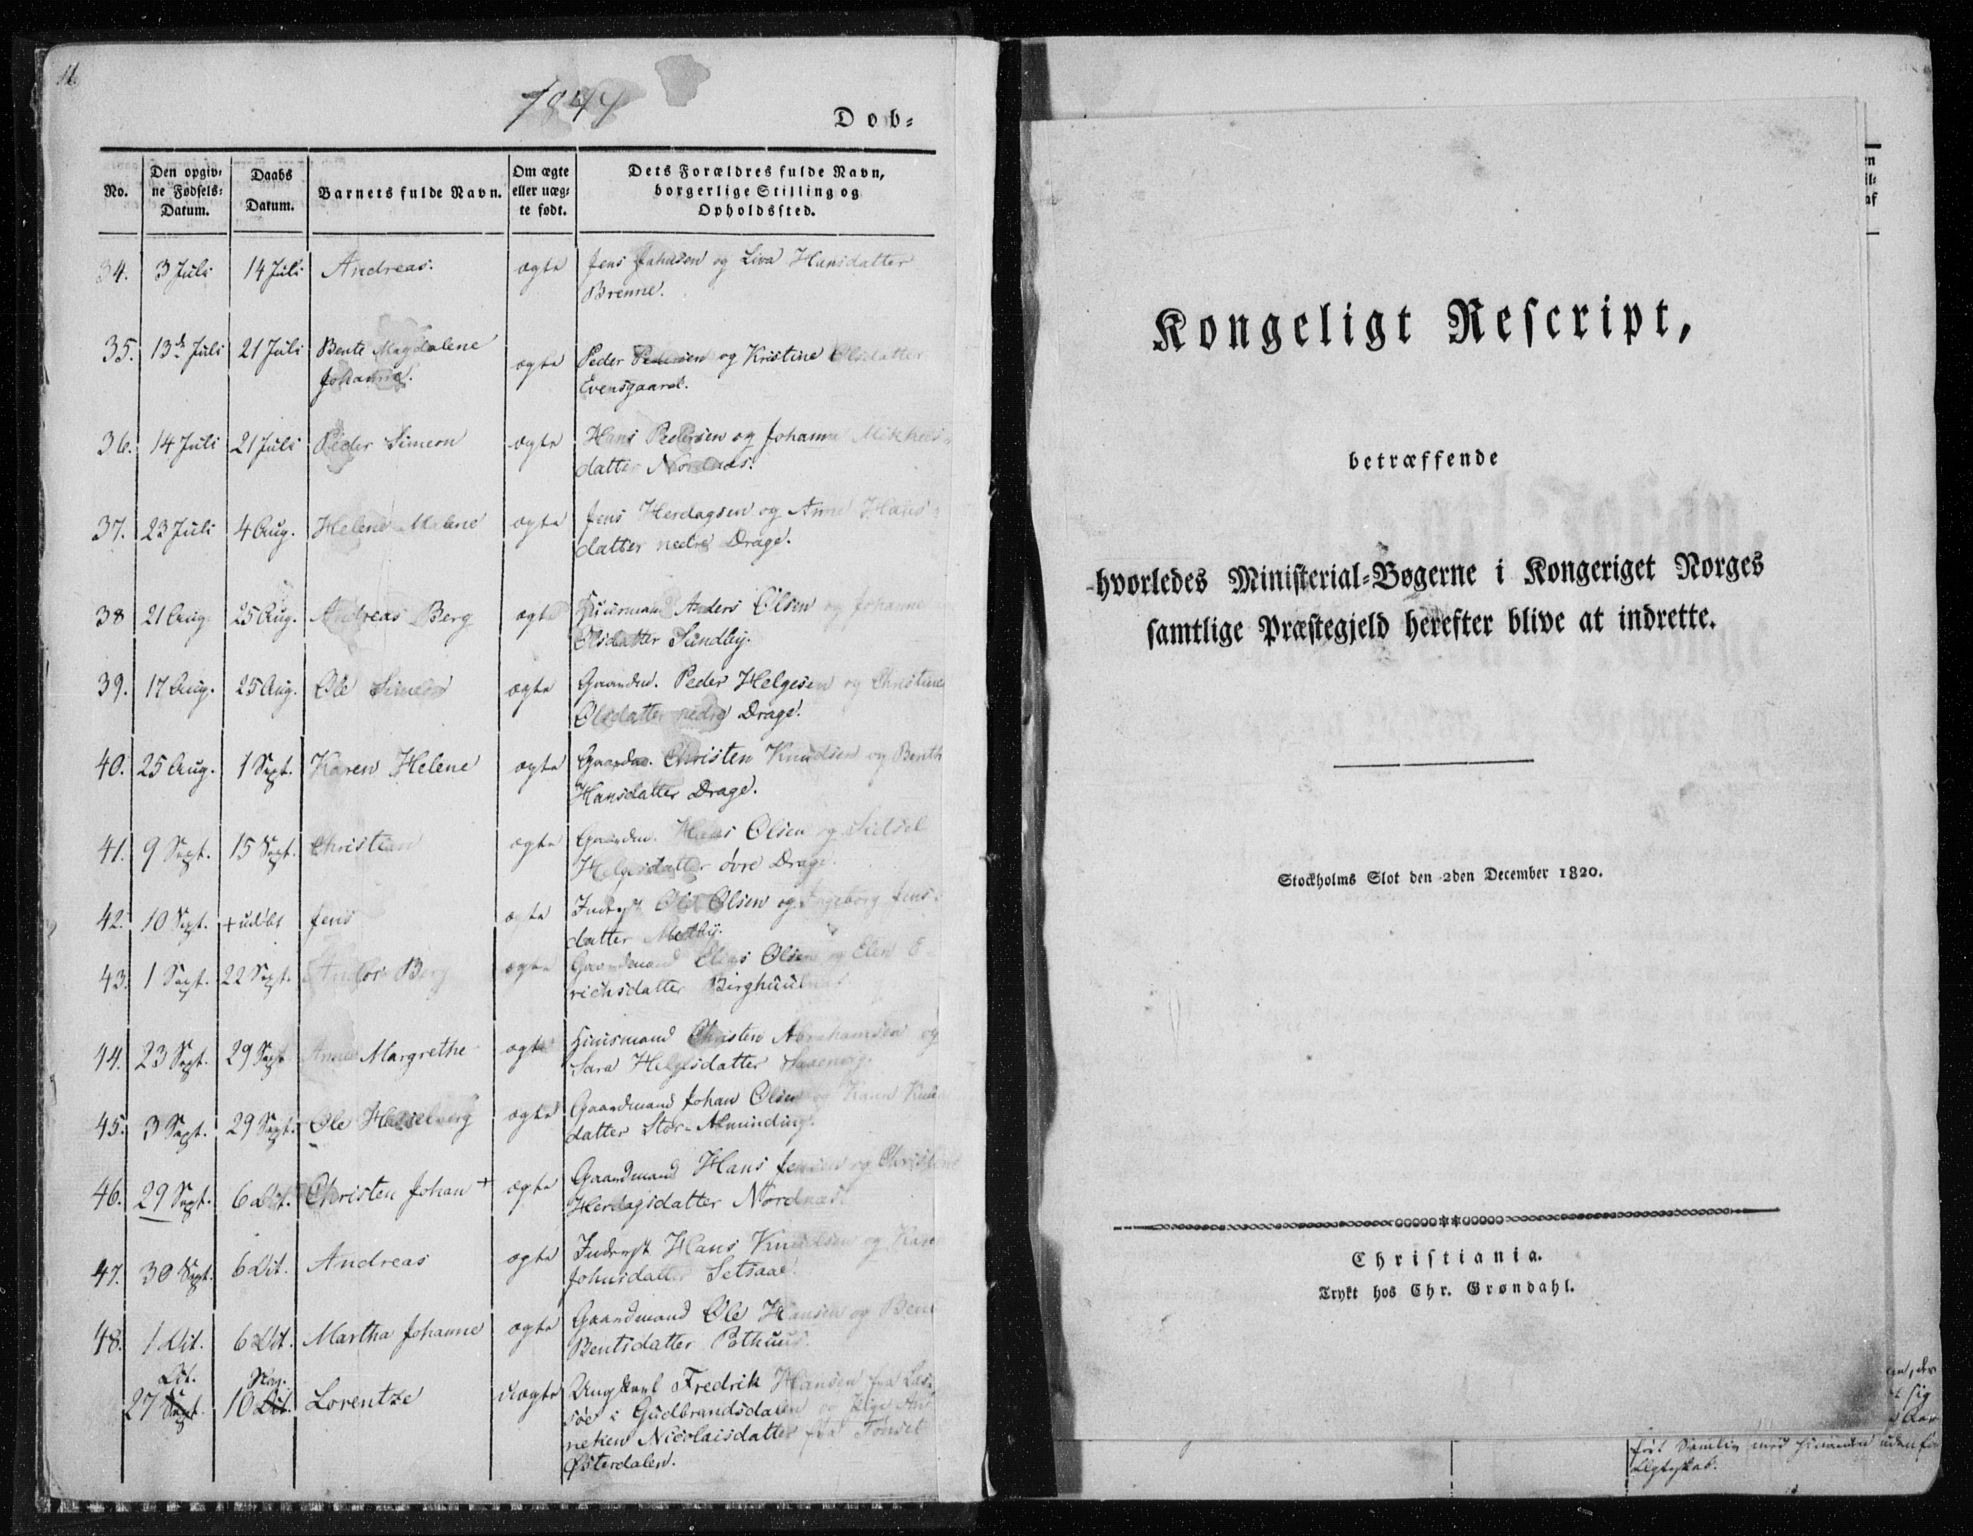 1844
Dob-
No.
Den opgiv-
ne Fødsels-
Datum.
Daabs
Datum.
Barnets fulde Navn.
Om ægte
eller uæg-
te født.
Dets Forældres fulde Navn,
borgerlige Stilling og
Opholdssted.
34. 3 Juli 14 Juli Andreas. ægte Jens Johnsen og Liva Hansdatter
Brenne.
35. 13de Juli 21 Juli Bente Magdalene
Johanna. ægte Peder Pedersen og Kristine Olsdatter
Evensgaard.
36. 14 Juli 21 Juli Peder Simeon ægte Hans Pedersen og Johanna Mikkels-
datter Nordnæs.
37. 23 Juli 4 Aug. Helene Malene ægte Jens Herdagsen og Anne Hans-
datter nedre Drage.
38 21 Aug. 25 Aug. Andreas Berg ægte Huusmand Anders Olsen og Johanne
Olsdatter Sundby.
39. 17 Aug. 25 Aug. Ole Simeon ægte Gaardm. Peder Helgesen og Christine
Olsdatter nedre Drage.
40. 25 Aug. 1 Sept. Karen Helene ægte Gaardm. Christen Knudsen og Benth
Hansdatter Drage.
41. 9 Sept. 15 Sept. Christian ægte Gaardm. Hans Olsen og Sidsel
Helgesdatter øvre Drage.
42. 10 Sept. Jens ægte Inderst Ole Olsen og Ingeborg Jens-
datter Medby.
43. 1 Sept. 22 Sept. Berg ægte Gaardmand Elias Olsen og Elen E-
richsdatter
44. 23 Sept. 29 Sept Anne Margrethe ægte Huusmand Christen Abrahamsen og
Sara Helgesdatter
45. 3 Sept. 29 Sept. Ole Hesselberg ægte Gaardmand Johan Olsen og
datter Stor-Alminding.
46. 29 Sept. 6 Oct. Christen Johan + ægte Gaardmand Hans Jensen og Christine
Herdagsdatter Nordnæs.
47. 30 Sept. 6 Oct. Andreas ægte Inderst Hans Knudsen og Karen
Johnsdatter Setsaae.
48. 1 Oct. 6 Oct. Martha Johanne ægte Gaardmand Ole Hansen og
Bentsdatter Pothuus.
Oct. Nov.
27 Sept. 10 Oct. Lorentze uægte Ungkarl Fredrik Hansen fra Les-
søe i Gudbrandsdalen og Pige An-
neken Nicolaisdatter fra Tønset
Østerdalen.
Kongeligt Rescript,
betræffende
hvorledes Ministerial-Bøgerne i Kongeriget Norges
samtlige Præstegjeld herefter blive at indrette.
Stockholms Slot den 2den December 1820.
Christiania.
Trykt hos Chr. Grøndahl.